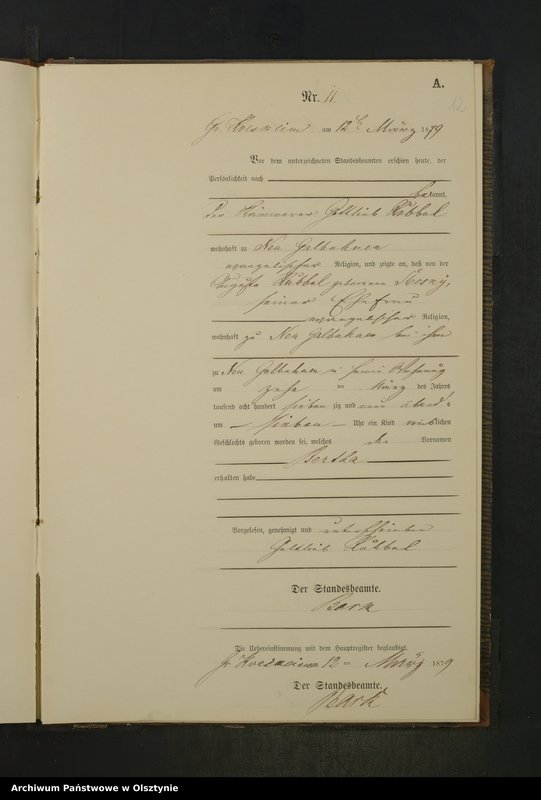 A.
12
Nr. 11
am 12ten März 1879
Vor dem unterzeichneten Standesbeamten erschien heute, der
Persönlichkeit nach
bekannt,
der Kämmerer Gottlieb Kübbel
wohnhaft zu Neu
evangelischer Religion, und zeigte an, daß von der
Auguste Kübbel geborenen
seiner Ehefrau
evangelischer Religion,
wohnhaft zu Neu bei ihm
zu Neu in seiner Wohnung
am zehn ten März des Jahres
tausend acht hundert sieben zig und neun Abends
um sieben Uhr ein Kind weiblichen
Geschlechts geboren worden sei, welches den Vornamen
Bertha
erhalten habe
Vorgelesen, genehmigt und unterschrieben
Gottlieb Kübbel
Der Standesbeamte.
Bark
Die Uebereinstimmung mit dem Hauptregister beglaubigt.
12 ten März 1879
Der Standesbeamte.
Bark
Archiwum Państwowe w Olsztynie